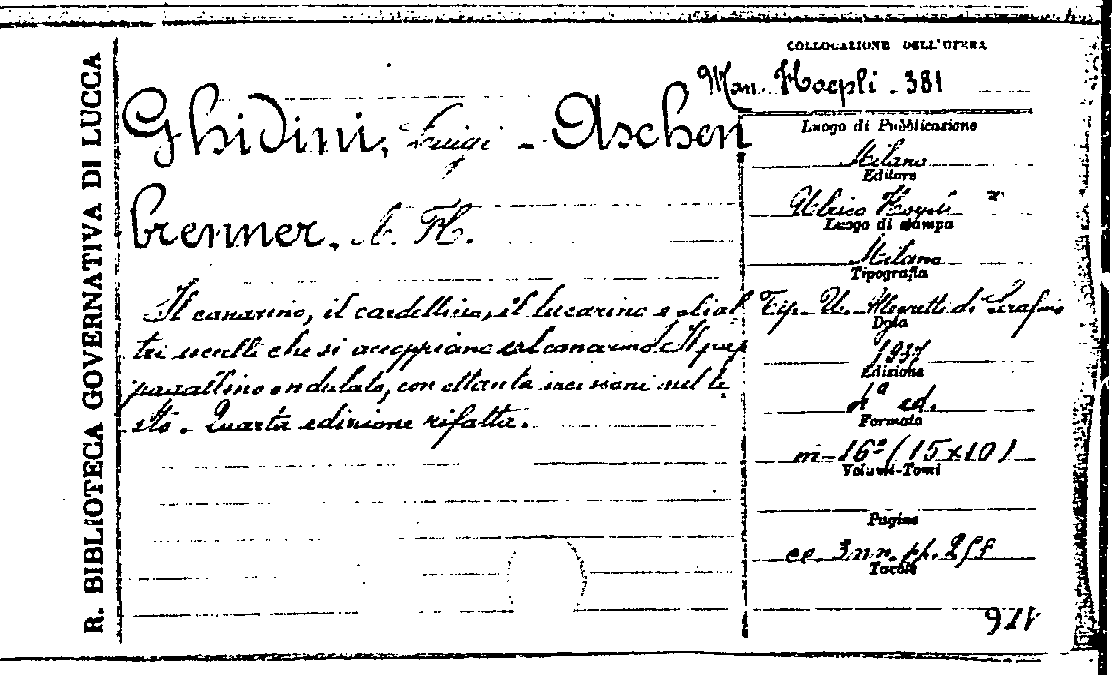 R. BIBLIOTECA GOVERNATIVA DI LUCCA
Ghidini, Luigi - Aschen
brenner, A. H.
Il canarino, il cardellino, il lucarino e gli al
tri uccelli che si accoppiano col canarino. Il pap
pagallino ondulato, con ottanta incisioni nel te
sto. Quarta edizione rifatta.
COLLOCAZIONE DELL'OPERA
Man. Hoepli - 381
Luogo di Pubblicazione
Milano
Editore
Ulrico Hoepli
Luogo di stampa
Milano
Tipografia
Tip. U. di Serafino
Data
1937
Edizione
4ª ed.
Formato
in-16° (15x10)
Volumi-Tomi
Pagine
cc. 3 nn. pp.
Tavole